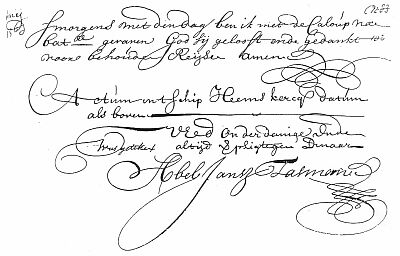 Smorgens met den dag ben ik met de Caloup nae
gevaren God zij gelooft ende gedankt
voor behoude Reijse amen
Actum int Schip Heemskercq datum
als boven
UEd Onderdanige ende
altijd Dinaar
Abel Jansz Tasman